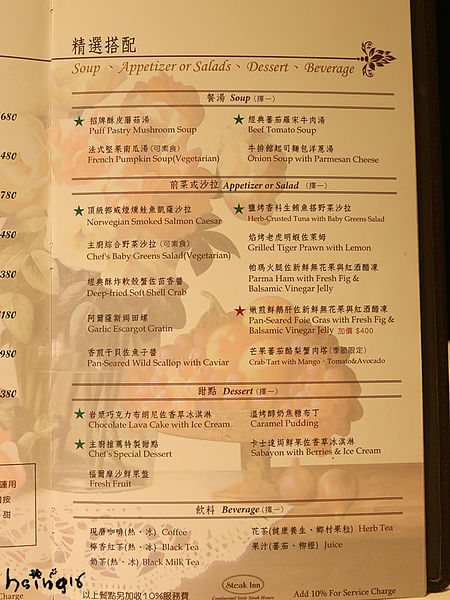 精選搭配
Soup、Appetizer or Salads、Dessert、Beverage
餐湯 Soup (擇一)
★ 招牌酥皮蘑菇湯
Puff Pastry Mushroom Soup
法式堅果南瓜湯(可素食)
French Pumpkin Soup(Vegetarian)
★ 經典蕃茄羅宋牛肉湯
Beef Tomato Soup
牛排館起司麵包洋蔥湯
Onion Soup with Parmesan Cheese
前菜或沙拉 Appetizer or Salad (擇一)
★ 頂級挪威煙燻鮭魚凱薩沙拉
Norwegian Smoked Salmon Caesar
主廚綜合野菜沙拉(可素食)
Chef's Baby Greens Salad(Vegetarian)
經典酥炸軟殼蟹佐茴香醬
Deep-fried Soft Shell Crab
阿爾薩斯焗田螺
Garlic Escargot Gratin
香煎干貝佐魚子醬
Pan-Seared Wild Scallop with Caviar
★ 鹽烤香料生鮪魚搭野菜沙拉
Herb-Crusted Tuna with Baby Greens Salad
焰烤老虎明蝦佐萊姆
Grilled Tiger Prawn with Lemon
帕瑪火腿佐新鮮無花果與紅酒醋凍
Parma Ham with Fresh Fig &
Balsamic Vinegar Jelly
★ 嫩煎鮮鵝肝佐新鮮無花果與紅酒醋凍
Pan-Seared Foie Gras with Fresh Fig &
Balsamic Vinegar Jelly 加價 $400
芒果蕃茄酪梨蟹肉塔(季節限定)
Crab Tart with Mango、Tomato&Avocado
甜點 Dessert (擇一)
★ 岩漿巧克力布朗尼佐香草冰淇淋
Chocolate Lava Cake with Ice Cream
★ 主廚推薦特製甜點
Chef's Special Dessert
福爾摩沙鮮果盤
Fresh Fruit
溫烤醇奶焦糖布丁
Caramel Pudding
卡士達焗鮮果佐香草冰淇淋
Sabayon with Berries & Ice Cream
飲料 Beverage (擇一)
現磨咖啡(熱、冰) Coffee
檸香紅茶(熱、冰) Black Tea
奶茶(熱、冰) Black Milk Tea
花茶(健康養生、鄉村果粒) Herb Tea
果汁(蕃茄、柳橙) Juice
以上餐點另加收10%服務費
Steak Inn
Continental Style Steak House
Add 10% For Service Charge
680
480
780
480
380
480
980
380
運用
按
甜
Charge
haingis